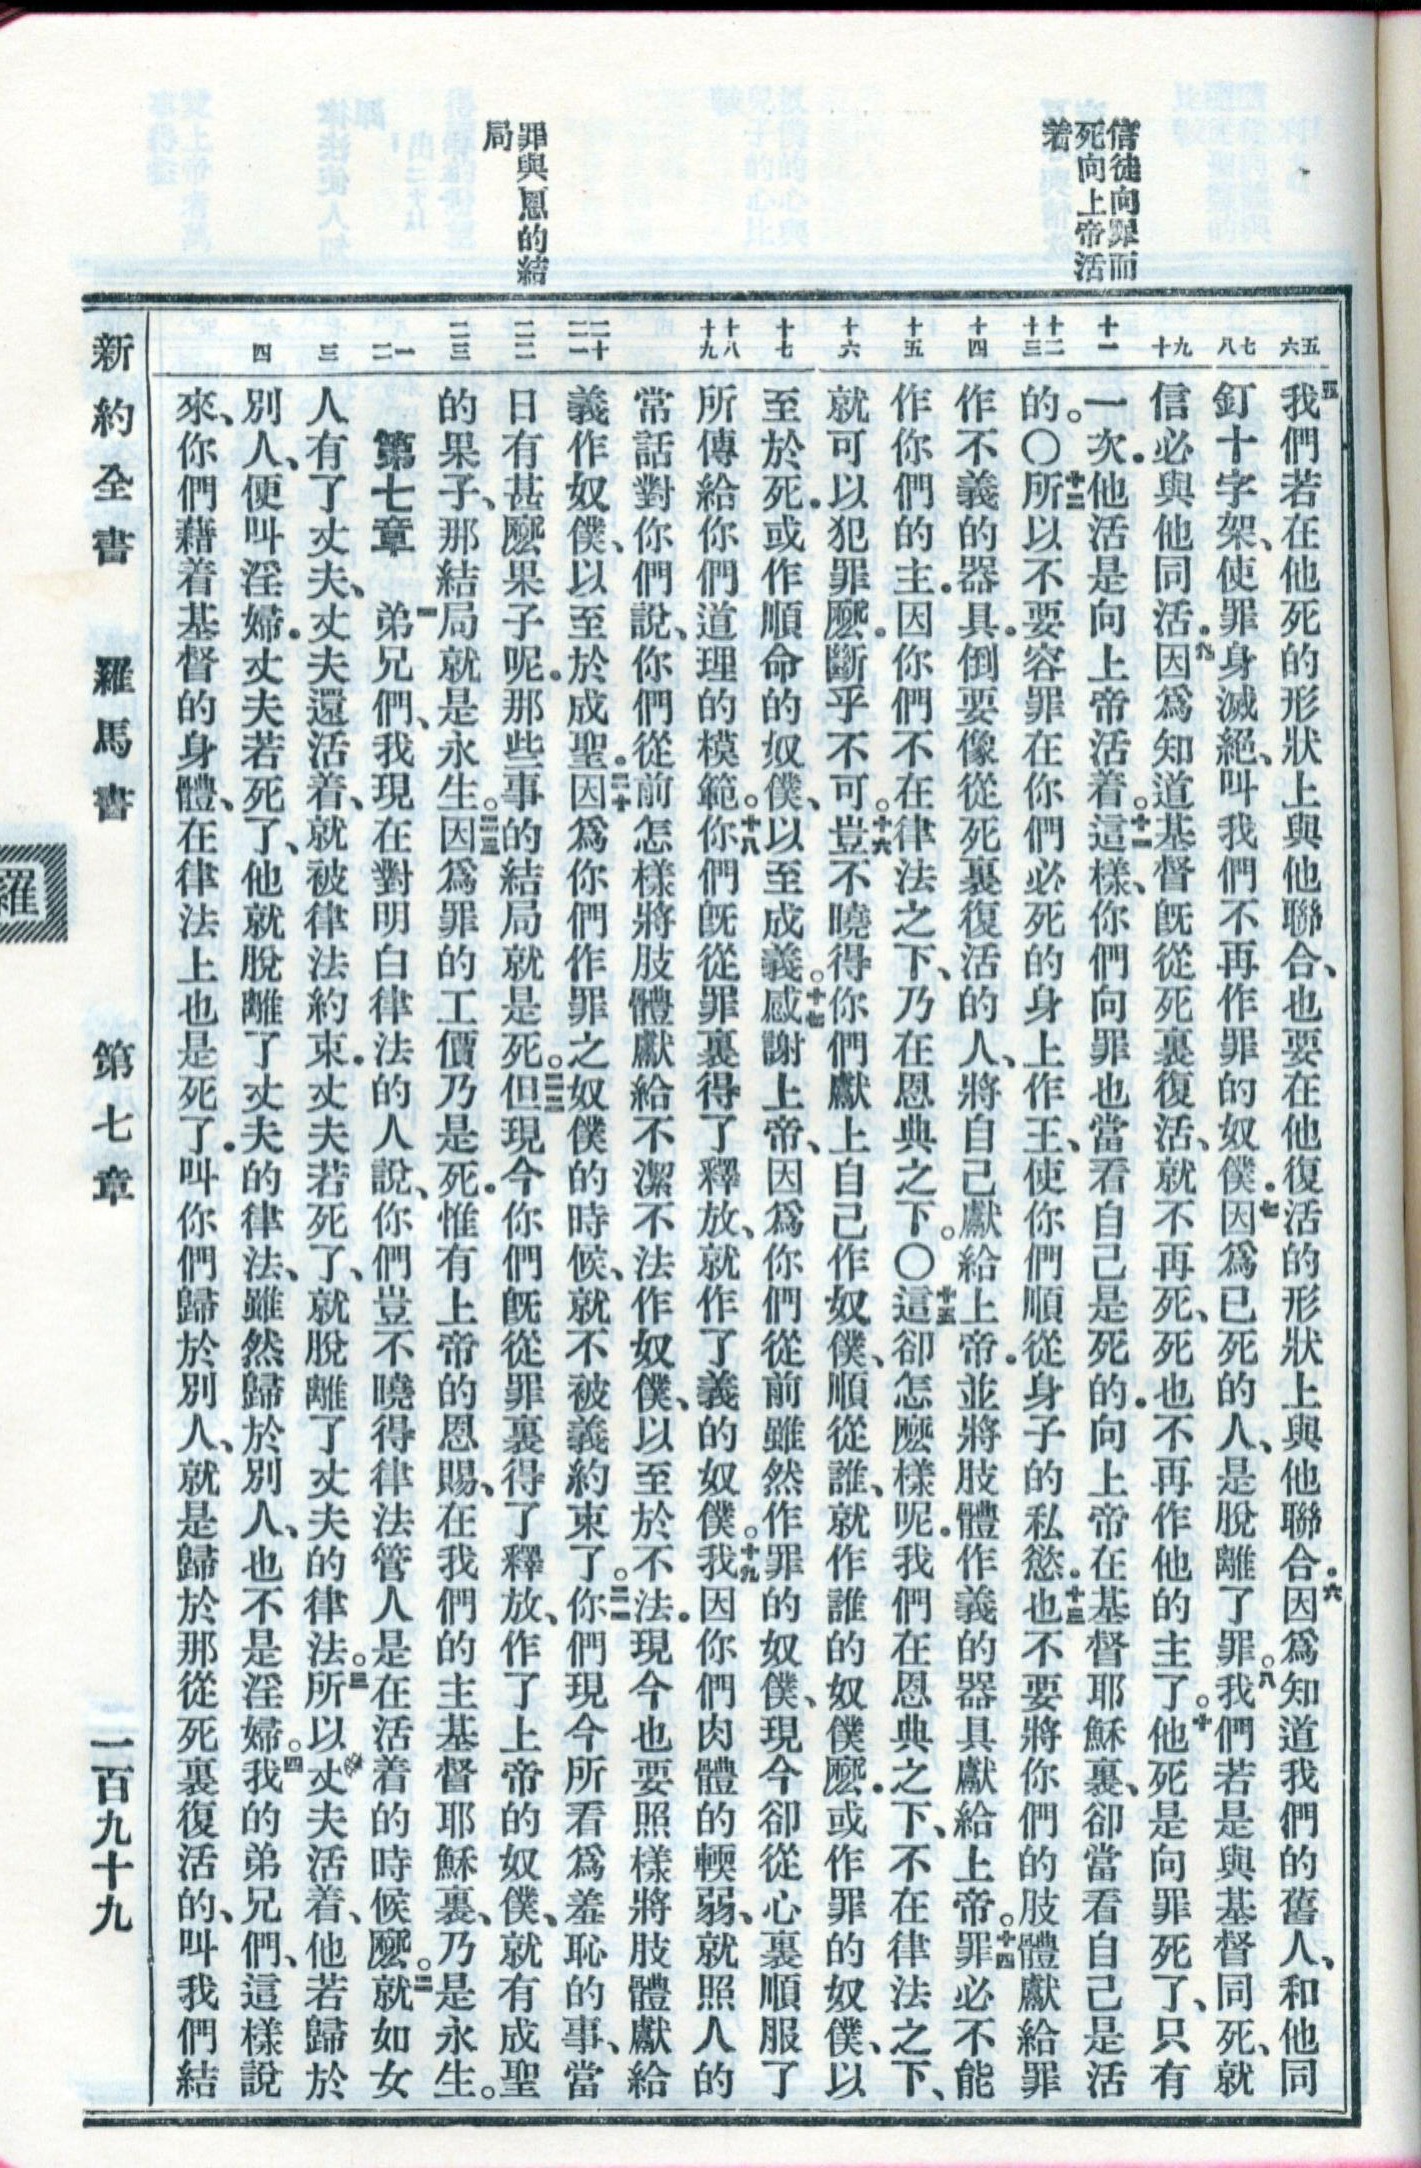 信徒向罪而
死向上帝活
着
罪與恩的結
局
五六
七八
九十
十一
十二十三
十四
十五
十六
十七
十八十九
二十二一
二二
二三
一二
三
四
五我們若在他死的形狀上與他聯合、也要在他復活的形狀上與他聯合。六因爲知道我們的舊人、和他同
釘十字架、使罪身滅絕、叫我們不再作罪的奴僕．七因爲已死的人、是脫離了罪。八我們若是與基督同死、就
信必與他同活．九因爲知道基督旣從死裏復活、就不再死、死也不再作他的主了。十他死是向罪死了、只有
一次．他活是向上帝活着。十一這樣、你們向罪也當看自己是死的．向上帝在基督耶穌裏、卻當看自己是活
的。〇十二所以不要容罪在你們必死的身上作王、使你們順從身子的私慾．十三也不要將你們的肢體獻給罪
作不義的器具．倒要像從死裏復活的人、將自己獻給上帝．並將肢體作義的器具獻給上帝。十四罪必不能
作你們的主．因你們不在律法之下、乃在恩典之下。〇十五這卻怎麽樣呢．我們在恩典之下、不在律法之下、
就可以犯罪麽．斷乎不可。十六豈不曉得你們獻上自己作奴僕、順從誰、就作誰的奴僕麽．或作罪的奴僕、以
至於死．或作順命的奴僕、以至成義。十七感謝上帝、因爲你們從前雖然作罪的奴僕、現今卻從心裏順服了
所傳給你們道理的模範。十八你們旣從罪裏得了釋放、就作了義的奴僕。十九我因你們肉體的輭弱、就照人的
常話對你們說、你們從前怎樣將肢體獻給不潔不法作奴僕、以至於不法．現今也要照樣將肢體獻給
義作奴僕、以至於成聖．二十因爲你們作罪之奴僕的時候、就不被義約束了。二一你們現今所看爲羞恥的事、當
日有甚麽果子呢．那些事的結局就是死。二二但現今你們旣從罪裏得了釋放、作了上帝的奴僕、就有成聖
的果子、那結局就是永生。二三因爲罪的工價乃是死．惟有上帝的恩賜、在我們的主基督耶穌裏、乃是永生。
第七章 一弟兄們、我現在對明白律法的人說、你們豈不曉得律法管人是在活着的時候麽。二就如女
人有了丈夫、丈夫還活着、就被律法約束．丈夫若死了、就脫離了丈夫的律法。三所以丈夫活着、他若歸於
別人、便叫淫婦．丈夫若死了、他就脫離了丈夫的律法、雖然歸於別人、也不是淫婦。四我的弟兄們、這樣說
來、你們藉着基督的身體、在律法上也是死了．叫你們歸於別人、就是歸於那從死裏復活的、叫我們結
新約全書 羅馬書 第七章 二百九十九
羅